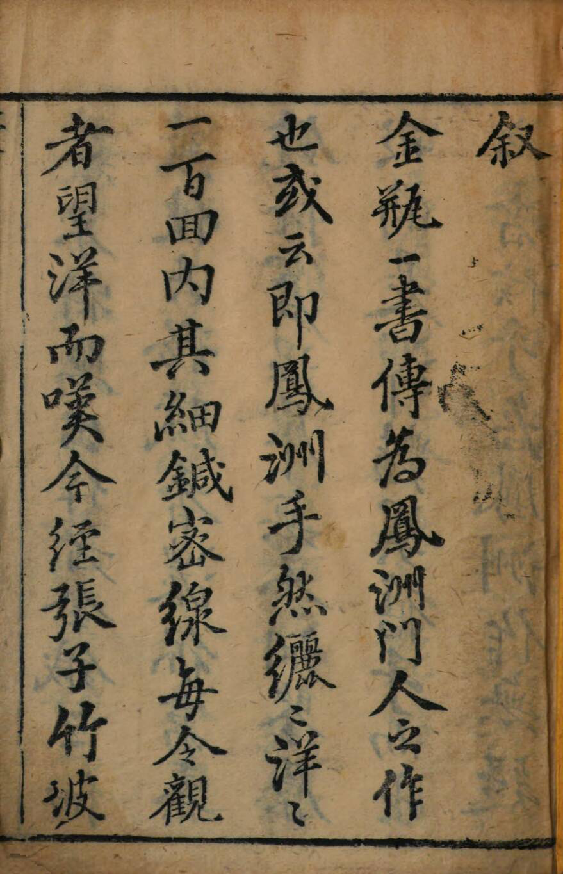 叙
金瓶一書傳為鳳洲門人之作
也或云即鳳洲手然纚〻洋〻
一百回内其細鍼宻線每令觀
者望洋而嘆今経張子竹坡